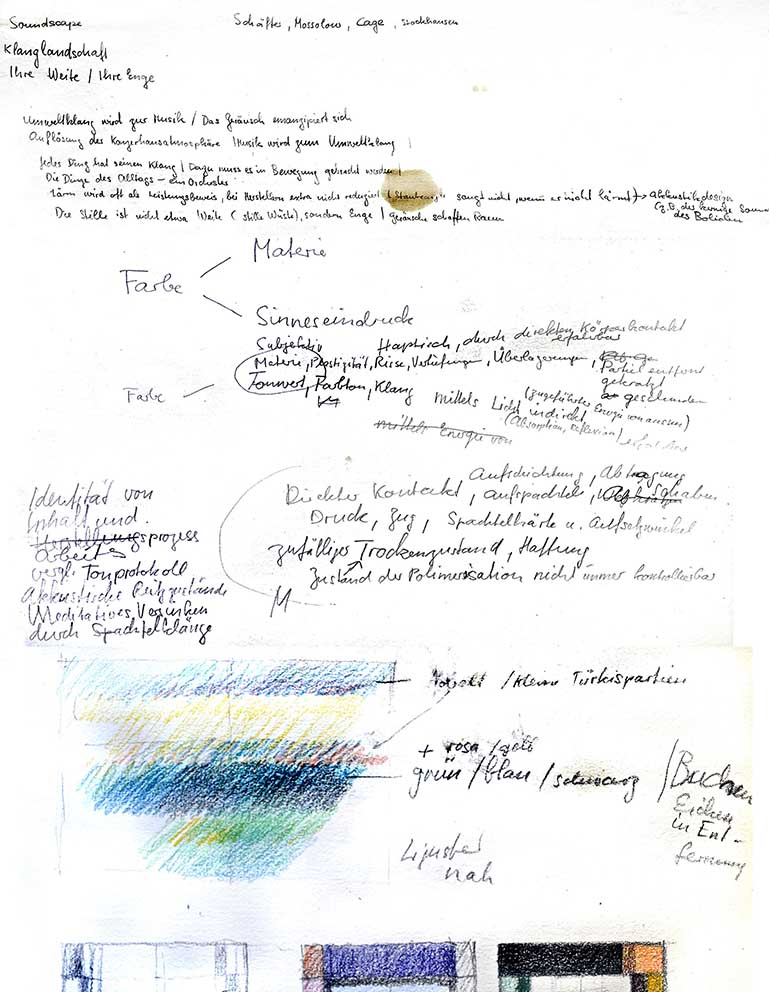 Soundscape
Schäfter, Mossolow, Cage, Stockhausen
Klanglandschaft
Ihre Weite / Ihre Enge
Umweltklang wird zur Musik / Das Geräusch emanzipiert sich
Auflösung der Konzerthausatmosphäre / Musik wird zum Umweltklang /
Jedes Ding hat seinen Klang / Dazu muss es in Bewegung gebracht werden /
Die Dinge des Alltags – ein Orchester
Lärm wird oft als Leistungsbeweis, bei Herstellern extra nicht reduziert saugt nicht, wenn er nicht lärmt) → Akkustikdesign
(z.B. der Sound
des Boliden
Die Stille ist nicht etwa Weite (stille Wüste), sondern Enge / Geräusche schaffen Raum
Materie
Farbe
Sinneseindruck
Subjektiv Haptisch, durch direkten Körperkontakt
erfahrbar
Materie, Plastizität, Risse, Vertiefungen, Überlagerungen,
Partiel entfernt
gekratzt
geschunden
Farbe
Tonwert, Farbton, Klang mittels Licht indirekt
(zugeführter Energie von aussen)
(Absorption, Reflexion)
mittels Energie von
Aufschichtung, Abtragung
Direkter Kontakt, aufspachteln, Schaben
Druck, Zug, Spachtelhärte u. Aufsetzwinkel
zufälliger Trockenzustand, Haftung
Zustand der Polimerisation nicht immer kontrollierbar
M
Identität von
Inhalt und
Herstellungsprozess
Arbeits
vergl. Tonprotokoll
Akkustische Ritzzustände
Meditatives Versinken
durch Spachtelklänge
/ kleine Türkispartien
+ rosa / gelb
grün / blau / schwarz
/ Buchen
Eichen
in Ent-
fernung
Liguster
nah